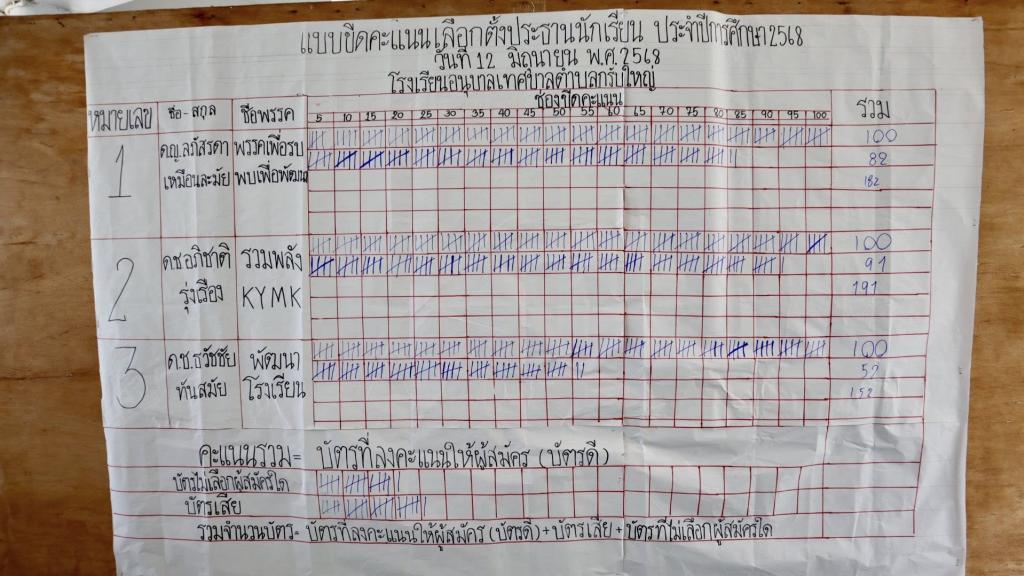 แบบขีดคะแนนเลือกตั้งประธานนักเรียน ประจำปีการศึกษา 2568
วันที่ 12 มิถุนายน พ.ศ. 2568
โรงเรียนอนุบาลเทศบาลตำบลกรับใหญ่
หมายเลข ชื่อ-สกุล ชื่อพรรค ช่องขีดคะแนน รวม
5 10 15 20 25 30 35 40 45 50 55 60 65 70 75 80 85 90 95 100
1 ด.ญ.ลภัสรดา พรรคเพื่อรบ 100
เหมือนละมัย พบเพื่อพัฒนา 82
182
2 ด.ช.อภิชาติ รวมพลัง 100
รุ่งเรือง KYMK 91
191
3 ด.ช.ธวัชชัย พัฒนา 100
ทันสมัย โรงเรียน 52
152
คะแนนรวม= บัตรที่ลงคะแนนให้ผู้สมัคร (บัตรดี)
บัตรไม่เลือกผู้สมัครใด
บัตรเสีย
รวมจำนวนบัตร= บัตรที่ลงคะแนนให้ผู้สมัคร (บัตรดี)+บัตรเสีย+บัตรที่ไม่เลือกผู้สมัครใด